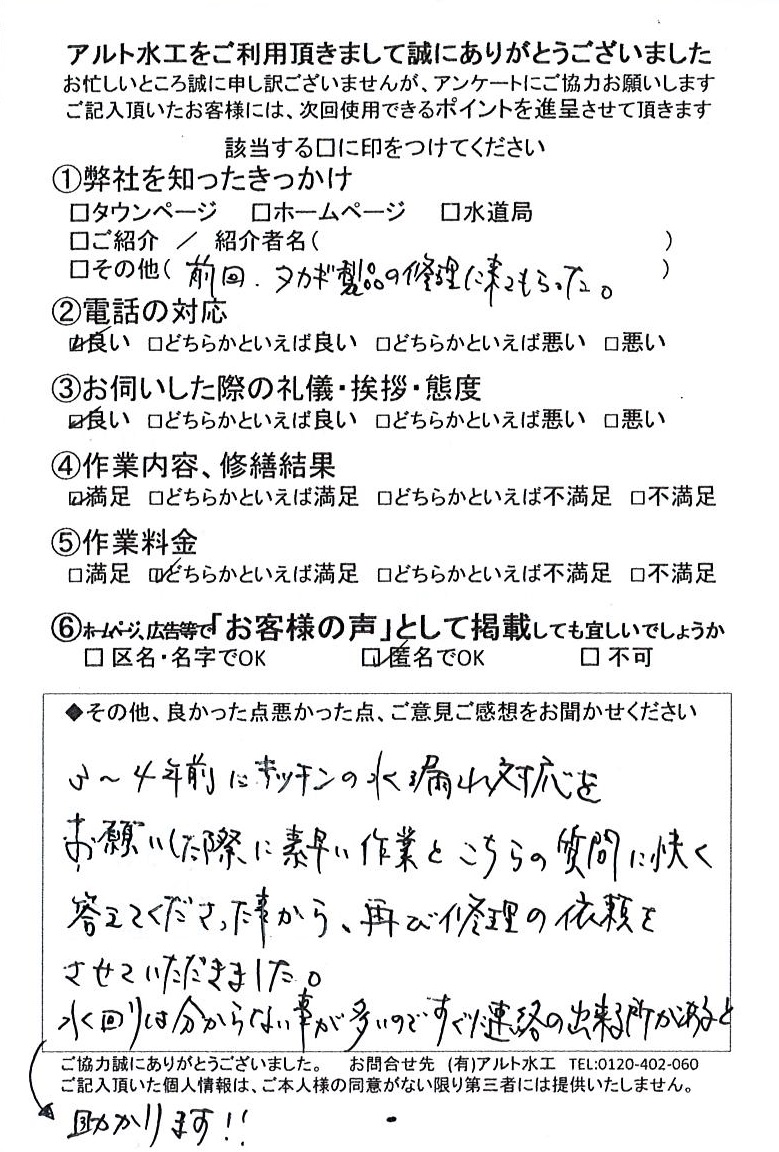 アルト水工をご利用頂きまして誠にありがとうございました
お忙しいところ誠に申し訳ございませんが、アンケートにご協力お願いします
ご記入頂いたお客様には、次回使用できるポイントを進呈させて頂きます
該当する□に印をつけてください
①弊社を知ったきっかけ
□タウンページ □ホームページ □水道局
□ご紹介 ／ 紹介者名( )
□その他( 前回、タカギ製品の修理に来てもらった。 )
②電話の対応
☑良い □どちらかといえば良い □どちらかといえば悪い □悪い
③お伺いした際の礼儀・挨拶・態度
☑良い □どちらかといえば良い □どちらかといえば悪い □悪い
④作業内容、修繕結果
☑満足 □どちらかといえば満足 □どちらかといえば不満足 □不満足
⑤作業料金
□満足 ☑どちらかといえば満足 □どちらかといえば不満足 □不満足
⑥ホームページ、広告等で「お客様の声」として掲載しても宜しいでしょうか
□ 区名・名字でOK ☑匿名でOK □ 不可
◆その他、良かった点悪かった点、ご意見ご感想をお聞かせください
3〜4年前にキッチンの水漏れ対応を
お願いした際に素早い作業とこちらの質問に快く
答えてくださった事から、再び修理の依頼を
させていただきました。
水回りは分からない事が多いのですぐに連絡の出来る所があると
ご協力誠にありがとうございました。 お問合せ先 (有)アルト水工 TEL:0120-402-060
ご記入頂いた個人情報は、ご本人様の同意がない限り第三者には提供いたしません。
助かります!!